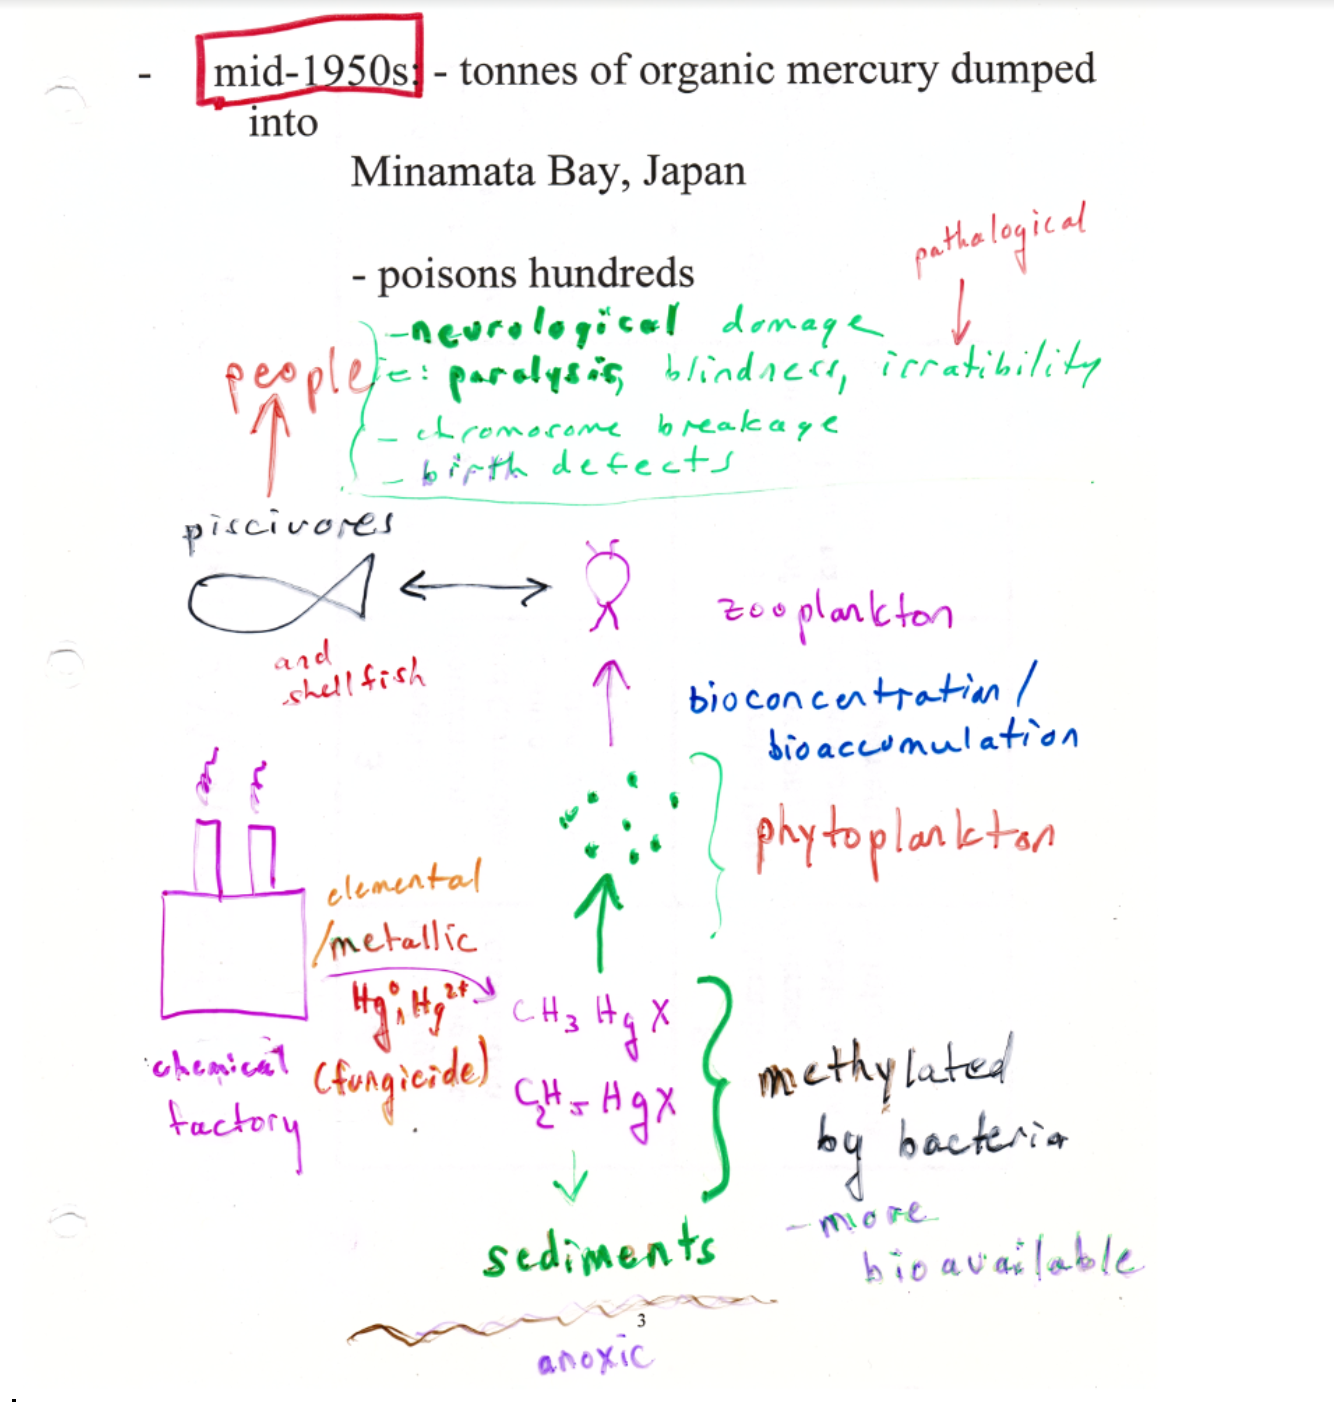 - mid-1950s: - tonnes of organic mercury dumped
into
Minamata Bay, Japan
pathalogical
- poisons hundreds
- neurological damage
people
ie: paralysis, blindness, irratibility
- chromosome breakage
- birth defects
piscivores
zooplankton
and
shellfish
bioconcentration/
bioaccumulation
phytoplankton
elemental
/metallic
Hg⁰, Hg²⁺
CH₃ Hg X
chemical
factory
(fungicide)
C₂H₅ HgX
methylated
by bacteria
- more
bioavailable
sediments
3
anoxic